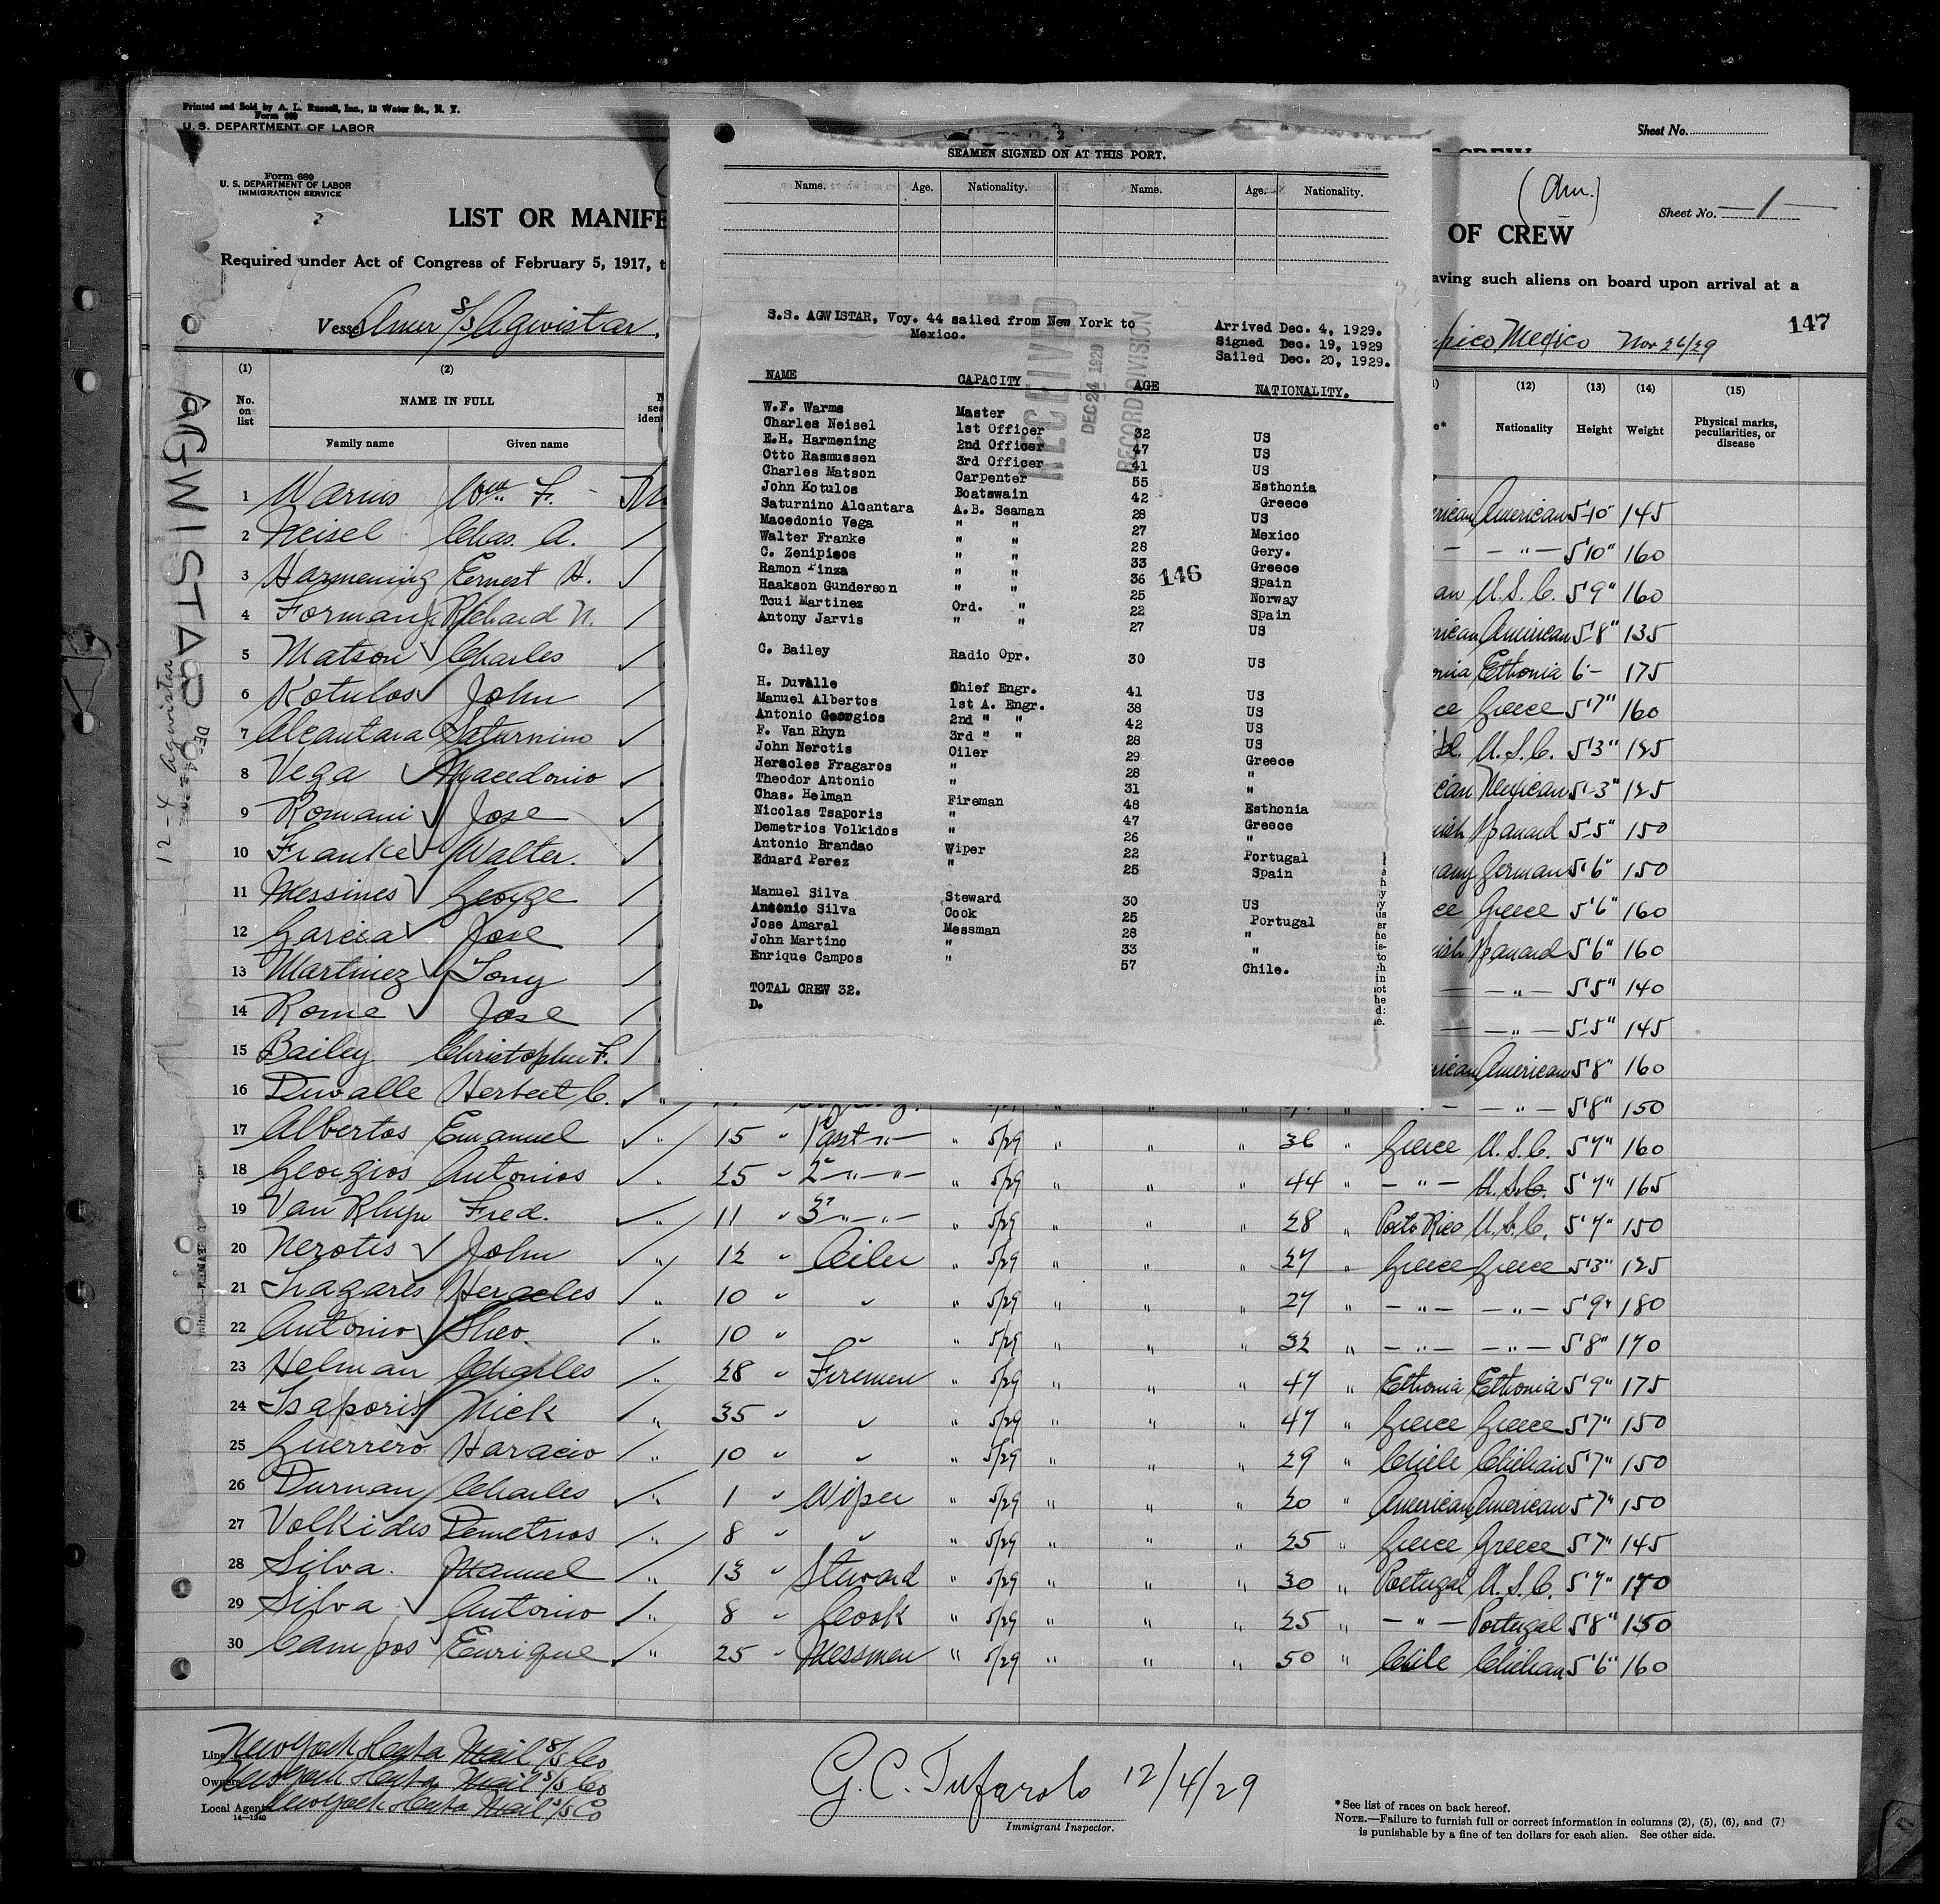 Printed and Sold by A. L. Russell, Inc., 13 Water St., N. Y.
Form 680
U. S. DEPARTMENT OF LABOR
Sheet No.
Form 680
U. S. DEPARTMENT OF LABOR
IMMIGRATION SERVICE
(Am.)
Sheet No. —1—
LIST OR MANIFE
OF CREW
Required under Act of Congress of February 5, 1917, t
aving such aliens on board upon arrival at a
Vessel Amer S/S Agwistar.
pico Mexico Nov 26/29
147
AGWISTAR
12-4 Agwistar
2
SEAMEN SIGNED ON AT THIS PORT.
Name. Age. Nationality. Name. Age. Nationality.
S.S. AGWISTAR, Voy. 44 sailed from New York to
Mexico.
Arrived Dec. 4, 1929.
Signed Dec. 19, 1929
Sailed Dec. 20, 1929.
RECEIVED
DEC 24 1929
RECORD DIVISION
NAME CAPACITY AGE NATIONALITY.
W.F. Warms Master
Charles Neisel 1st Officer 32 US
E.H. Harmening 2nd Officer 47 US
Otto Rasmussen 3rd Officer 41 US
Charles Matson Carpenter 55 Esthonia
John Kotulos Boatswain 42 Greece
Saturnino Alcantara A.B. Seaman 28 US
Macedonio Vega " " 27 Mexico
Walter Franke " " 28 Gery.
C. Zenipicos " " 33 Greece
Ramon Finza " " 36 Spain
146
Haakson Gunderson " " 25 Norway
Toui Martinez Ord. " 22 Spain
Antony Jarvis " " 27 US
C. Bailey Radio Opr. 30 US
H. Duvalle Chief Engr. 41 US
Manuel Albertos 1st A. Engr. 38 US
Antonio Georgios 2nd " " 42 US
F. Van Rhyn 3rd " " 28 US
John Nerotis Oiler 29 Greece
Heracles Fragaros " 28 "
Theodor Antonio " 31 "
Chas. Helman Fireman 48 Esthonia
Nicolas Tsaporis " 47 Greece
Demetrios Volkidos " 26 "
Antonio Brandao Wiper 22 Portugal
Eduard Perez " 25 Spain
Manuel Silva Steward 30 US
Antonio Silva Cook 25 Portugal
Jose Amaral Messman 28 "
John Martino " 33 "
Enrique Campos " 57 Chile.
TOTAL CREW 32.
D.
(1) (2) (12) (13) (14) (15)
No. on list NAME IN FULL Nationality Height Weight Physical marks, peculiarities, or disease
Family name Given name
1 Warms Wm F. - American 5-10" 145
2 Neisel Chas. A. — " — 5'10" 160
3 Harmening Ernest H. U.S.C. 5'9" 160
4 Forman Richard N. American 5-8" 135
5 Matson Charles Esthonia 6- 175
6 Kotulos John Greece 5'7" 160
7 Alcantara Saturnino U.S.C. 5'3" 125
8 Vega Macedonio Mexican 5-3" 125
9 Romani Jose Spaniard 5-5" 150
10 Franke Walter. German 5'6" 150
11 Messines George Greece 5'6" 160
12 Garcia Jose Spaniard 5'6" 160
13 Martinez Tony — " — 5'5" 140
14 Rome Jose — " — 5-5" 145
15 Bailey Christopher F. American 5'8" 160
16 Duvalle Herbert C. — " — 5'8" 150
17 Albertos Emanuel " 15 " 1 asst " " 5/29 " " " 36 " Greece U.S.C. 5'7" 160
18 Georgios Antonios " 25 " 2 " " " 5/29 " " " 44 " — " — U.S.C. 5'7" 165
19 Van Rhyn Fred. " 11 " 3 " " " 5/29 " " " 28 " Porto Rico U.S.C. 5'7" 150
20 Nerotis John " 12 " Oiler " 5/29 " " " 27 " Greece Greece 5'3" 125
21 Fragares Heracles " 10 " " " 5/29 " " " 27 " — " — — " — 5'9" 180
22 Antonio Theo. " 10 " " " 5/29 " " " 32 " — " — — " — 5'8" 170
23 Helman Charles " 28 " Firemen " 5/29 " " " 47 " Ethonia Ethonia 5'9" 175
24 Tsaporis Nick " 35 " " " 5/29 " " " 47 " Greece Greece 5'7" 150
25 Guerrero Haracio " 10 " " " 5/29 " " " 29 " Chile Chilian 5'7" 150
26 Durnan Charles " 1 " Wiper " 5/29 " " " 20 " American American 5'7" 150
27 Volkides Demetrios " 8 " " " 5/29 " " " 25 " Greece Greece 5'7" 145
28 Silva. Manuel " 13 " Steward " 5/29 " " " 30 " Portugal U.S.C. 5'7" 170
29 Silva Antonio " 8 " Cook " 5/29 " " " 25 " — " — Portugal 5'8" 150
30 Campos Enrique " 25 " Messmen " 5/29 " " " 50 " Chile Chilian 5'6" 160
Line New York Cuba Mail S/S Co
Owners New York Cuba Mail S/S Co
Local Agents New York Cuba Mail S/S Co
14—1240
G. C. Tufarolo 12/4/29
Immigrant Inspector.
*See list of races on back hereof.
NOTE.—Failure to furnish full or correct information in columns (2), (5), (6), and (7)
is punishable by a fine of ten dollars for each alien. See other side.